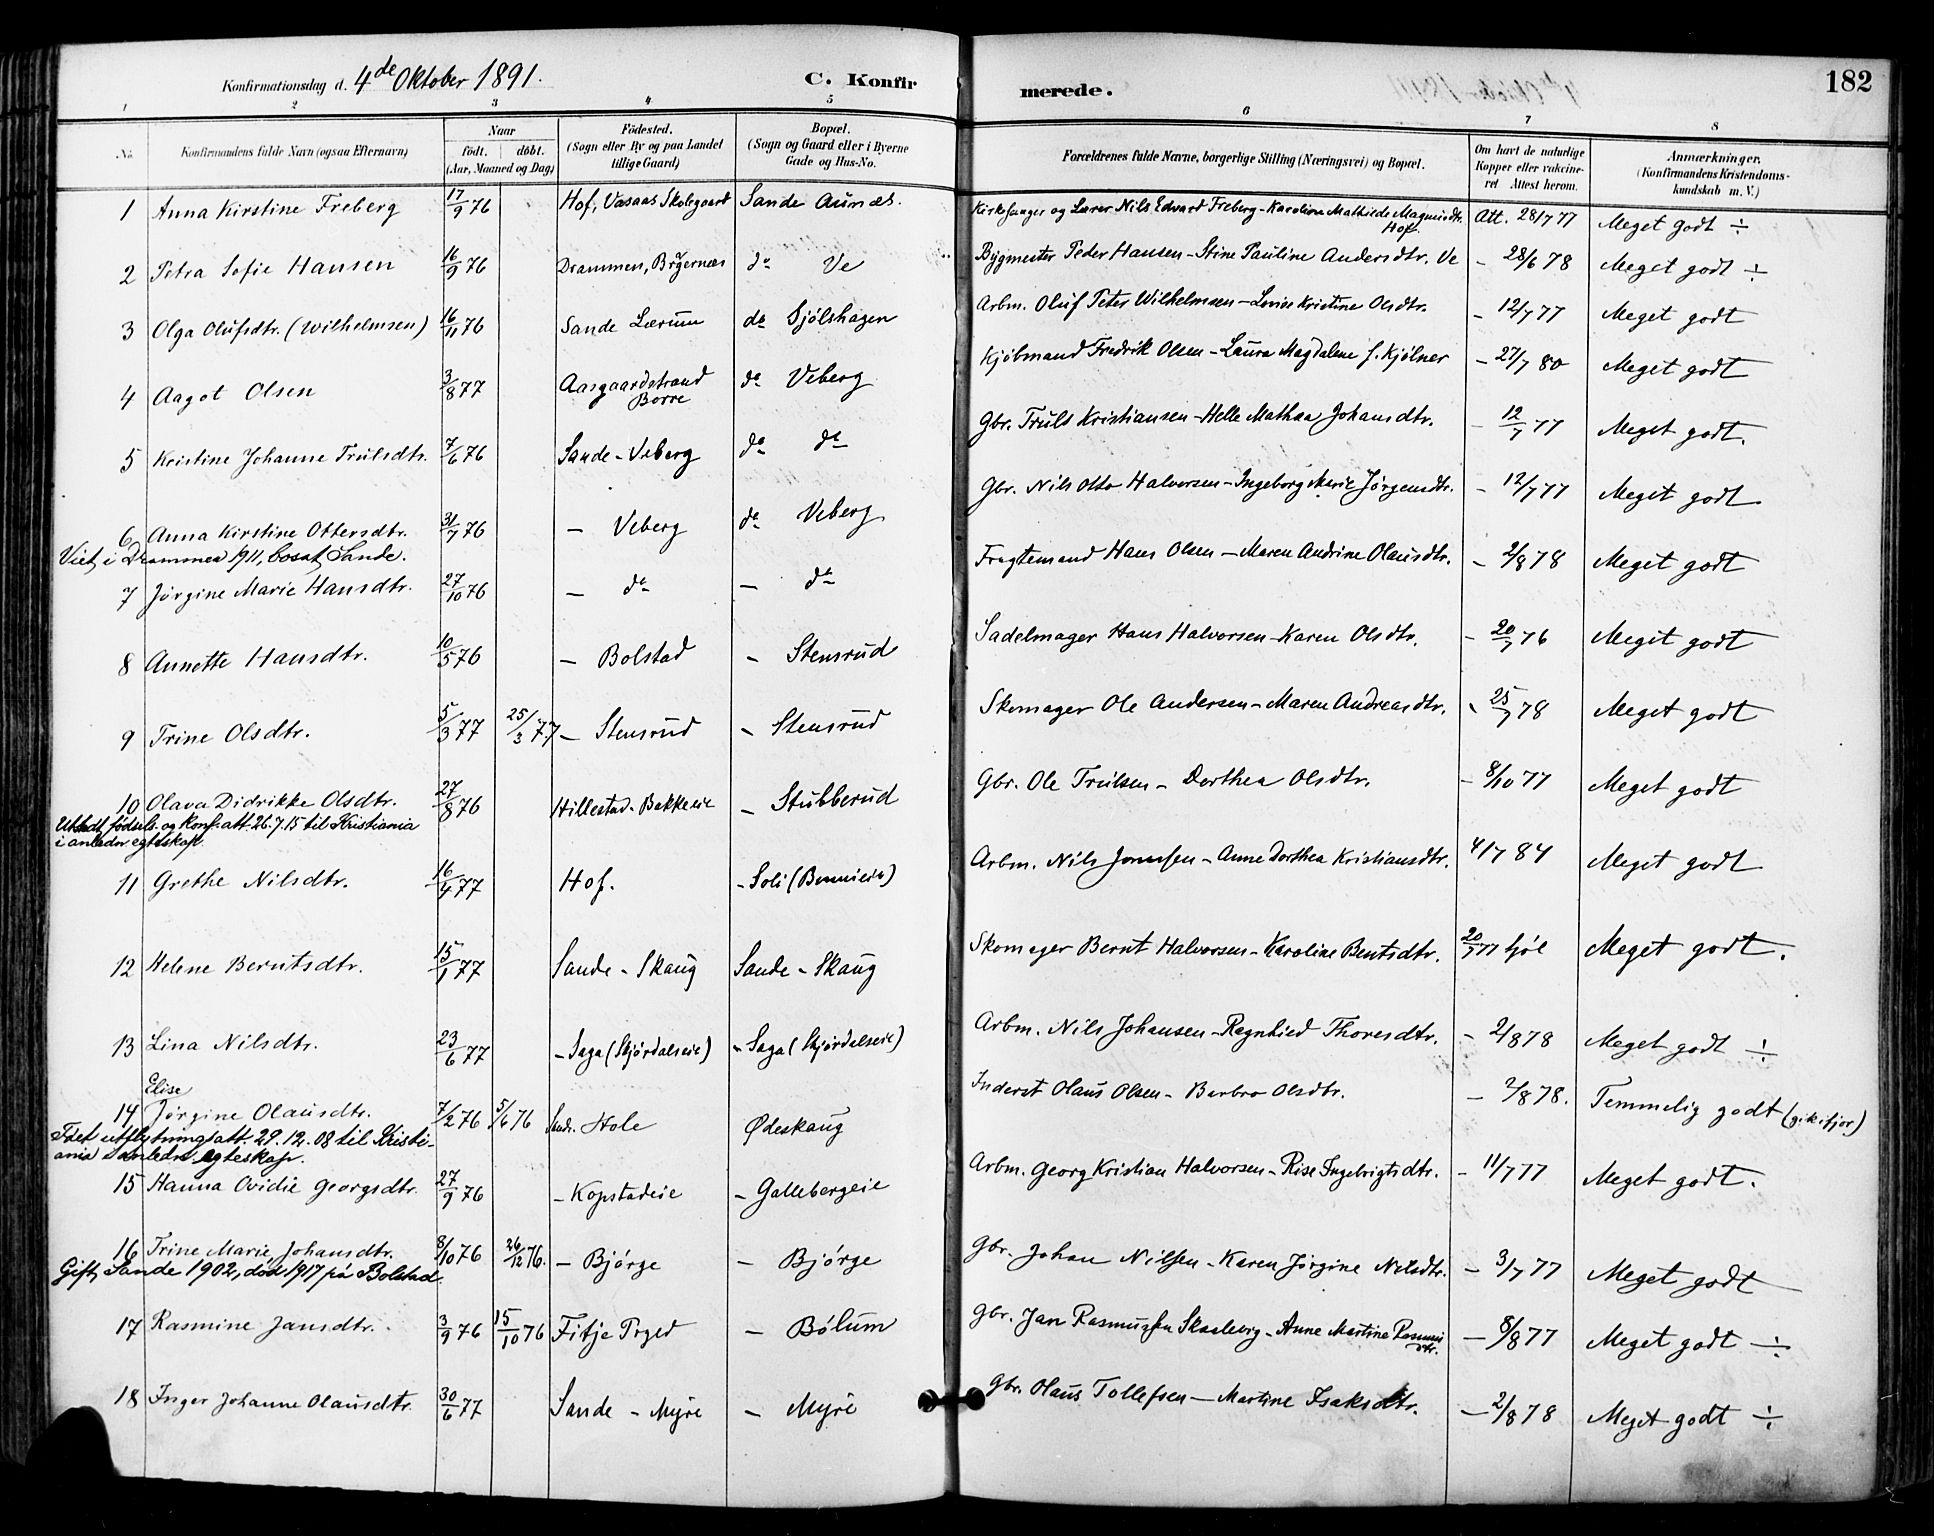 Konfirmationsdag d. 4de Oktober 1891.
C. Konfirmerede.
182
1 2 3 4 5 6 7 8
No.
Konfirmandens fulde Navn (ogsaa Efternavn)
Naar
födt. döbt.
(Aar, Maaned og Dag)
Födested.
(Sogn eller By og paa Landet
tillige Gaard)
Bopæl.
(Sogn og Gaard eller i Byerne
Gade og Hus-No.
Forældrenes fulde Navne, borgerlige Stilling (Næringsvei) og Bopæl.
Om havt de naturlige
Kopper eller vakcine-
ret Attest herom.
Anmærkninger.
(Konfirmandens Kristendoms-
kundskab m. V.)
1 Anna Kirstine Freberg 17/9 76 Hof, Vasaas Skolegaard Sande Aumæs. Kirkesanger og Lærer Nils Edvard Freberg - Karoline Mathilde Magnusdtr. Hof Att. 28/7 77 Meget godt ÷
2 Petra Sofie Hansen 16/9 76 Drammen, Brøgernæs do Ve Bygmester Peder Hansen - Stine Pauline Andersdtr. Ve - 28/6 78 Meget godt ÷
3 Olga Olufsdtr. (Wilhelmsen) 16/11 76 Sande Lærum do Sjølshagen Arbm. Oluf Peter Wilhelmsen - Lovise Kristine Olsdtr. - 12/7 77 Meget godt
4 Aagot Olsen 3/8 77 Aasgaardstrand Borre do Veberg Kjøbmand Fredrik Olsen - Laura Magdalene f. Kjølner - 27/7 80 Meget godt
5 Kristine Johanne Trulsdtr. 7/6 76 Sande - Veberg do do Gbr. Truls Kristiansen - Helle Mathea Johansdtr. - 12/7 77 Meget godt.
6 Anna Kirstine Ottersdtr. 31/7 76 - Veberg do Veberg Gbr. Nils Otto Halvorsen - Ingeborg Marie Jørgensdtr. - 12/7 77 Meget godt
Viet i Drammen 1911, bosat Sande.
7 Jørgine Marie Hansdtr. 27/10 76 - do - do Fragtemand Hans Olsen - Maren Andrine Olausdtr. - 2/8 78 Meget godt
8 Annette Hansdtr. 10/5 76 - Bolstad - Stensrud Sadelmager Hans Halvorsen - Karen Olsdtr. - 20/7 76 Meget godt
9 Trine Olsdtr. 5/3 77 25/3 77 - Stensrud - Stensrud Skomager Ole Andersen - Maren Andreasdtr. - 25/7 78 Meget godt
10 Olava Didrikke Olsdtr. 27/8 76 Hillestad - Bakkeeie - Stubberud Gbr. Ole Trulsen - Dorthea Olsdtr. - 8/10 77 Meget godt
Utstedt fødsels- og konf.att. 26.7.15 til Kristiania
i anledn. egteskap
11 Grethe Nilsdtr. 16/4 77 Hof. - Soli Arbm. Nils - Anne Dorthea Kristiansdtr. 4/7 84 Meget godt
12 Helene Berntsdtr. 15/1 77 Sande - Skaug Sande - Skaug Skomager Bernt Halvorsen - Karoline Bentsdtr. 20/7 77 Meget godt.
13 Lina Nilsdtr. 23/6 77 - Saga (Skjørdalseie) - Saga (Skjørdalseie) Arbm. Nils Johansen - Ragnhied Thoresdtr. - 2/8 78 Meget godt ÷
Elise
14 Jørgine Olausdtr. 7/2 76 5/6 76 Sande Hole Ødeskaug Inderst Olaus Olsen - Barbro Olsdtr. - 2/8 78. Temmelig godt (gik ifjor)
Fået utflytningsatt. 29.12.08 til Kristi-
ania i anledn. egteskap.
15 Hanna Ovidie Georgsdtr. 27/9 76 - Kopstadeie - Gallebergeie Arbm. Georg Kristian Halvorsen - Rise Ingebrigtsdtr. - 11/7 77 Meget godt.
16 Trine Marie Johansdtr. 8/10 76 26/12 76. - Bjørge - Bjørge Gbr. Johan Nilssen - Karen Jørgine Nilsdtr. - 3/7 77 Meget godt
Gift, Sande 1902, død 1917 på Bolstad.
17 Rasmine Jansdtr. 3/9 76 15/10 76 Fitje Prgjd - Bølum Gbr. Jan Rasmussen Skaaleberg - Anne Martine Rasmusdtr. - 8/8 77 Meget godt ÷
18 Inger Johanne Olausdtr. 30/6 77 Sande - Myre - Myre Gbr. Olaus Tollefsen - Martine Isaksdtr. - 2/8 78 Meget godt ÷